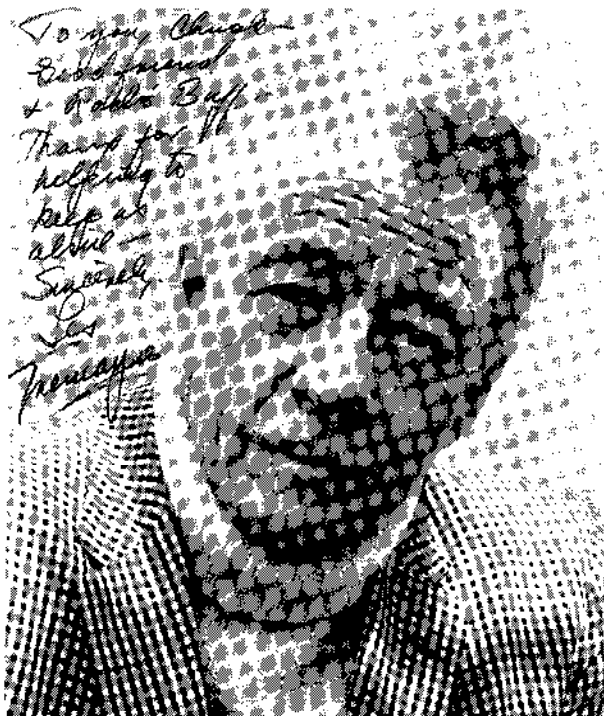 To you, Chuck —
Good friend
& Radio Buff —
Thanx for
helping to
keep us
alive —
Sincerely
Les
Tremayne